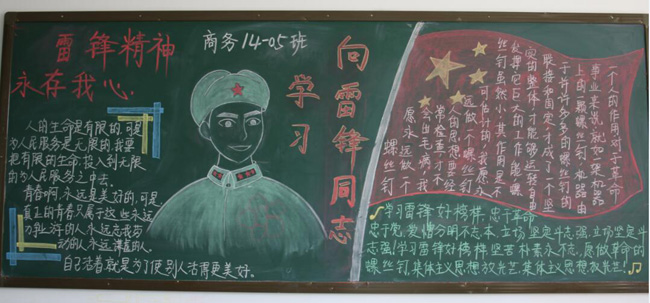 雷锋精神
永存我心.
商务14-05班
向雷锋同志
学习
人的生命是有限的.可是
为人民服务是无限的.我要
把有限的生命投入到无限
的为人民服务之中去.
青春啊,永远是美好的,可是
真正的青春只属于这些永远
力争上游的人,永远忘我劳
动的人,永远谦虚的人.
自己活着就是为了使别人活得更美好。
一个人的作用,对于革命
事业来说,就如一架机器
上的一颗螺丝钉.机器由
于有许许多多的螺丝钉的
联接和固定,才成了一个坚
实的整体,才能够运转自如,
发挥它巨大的工作能.螺
丝钉虽然小,其作用是不
可估计的,我愿永
远做一个螺丝钉.
人的思想要经
常检查,才不
会出毛病,我
愿永远做一个
螺丝钉
学习雷锋好榜样,忠于革命
忠于党,爱憎分明不忘本,立场坚定斗志强,立场坚定斗
志强!学习雷锋好榜样,艰苦朴素永不忘,愿做革命的
螺丝钉,集体主义思想放光芒,集体主义思想放光芒!